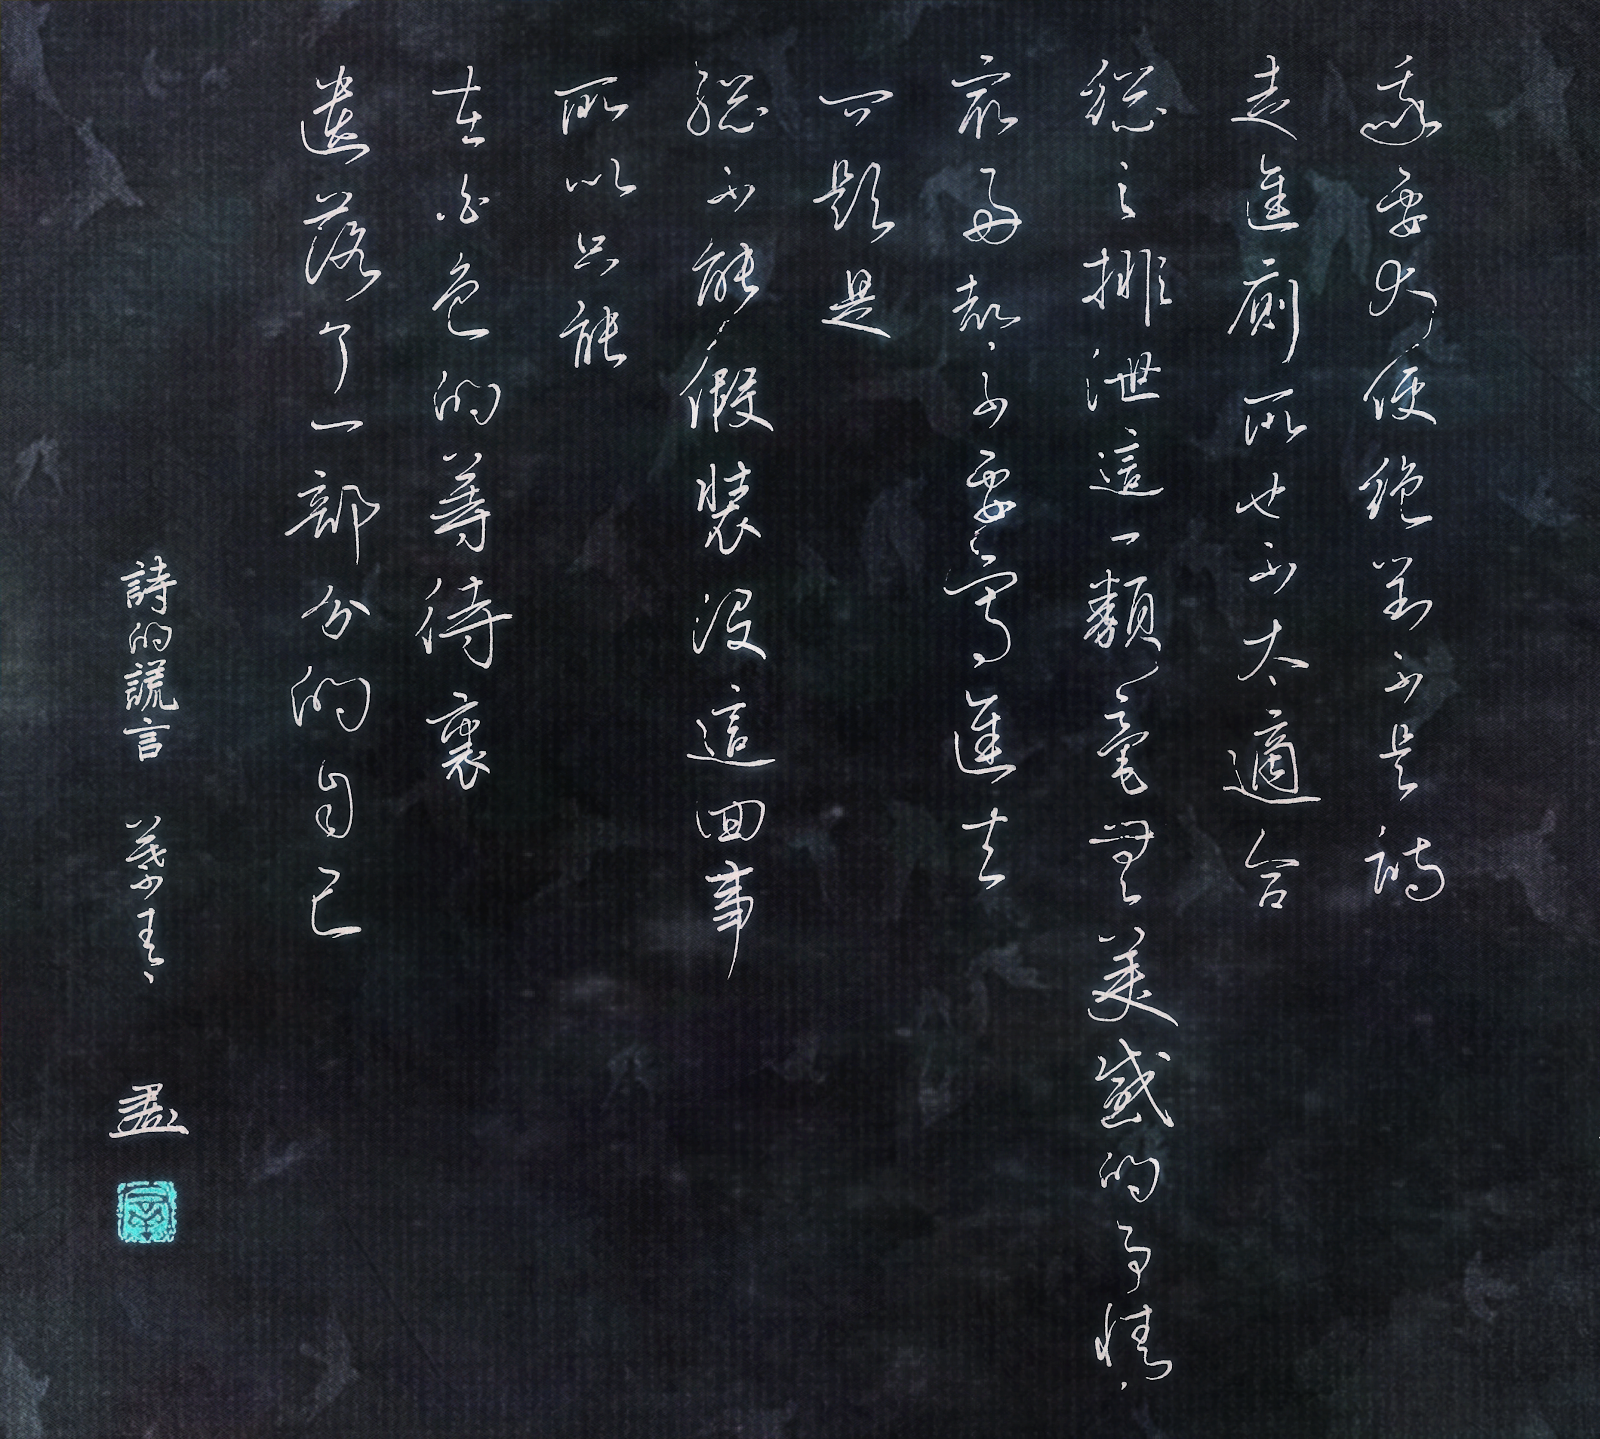 我要大便絕對不是詩
走進廁所也不太適合
總之排泄這一類毫無美感的事情
最好都不要寫進去
可是
總不能假裝沒這回事
所以只能
在白色的等待裏
遺落了一部分的自己
詩的謊言 蔡青